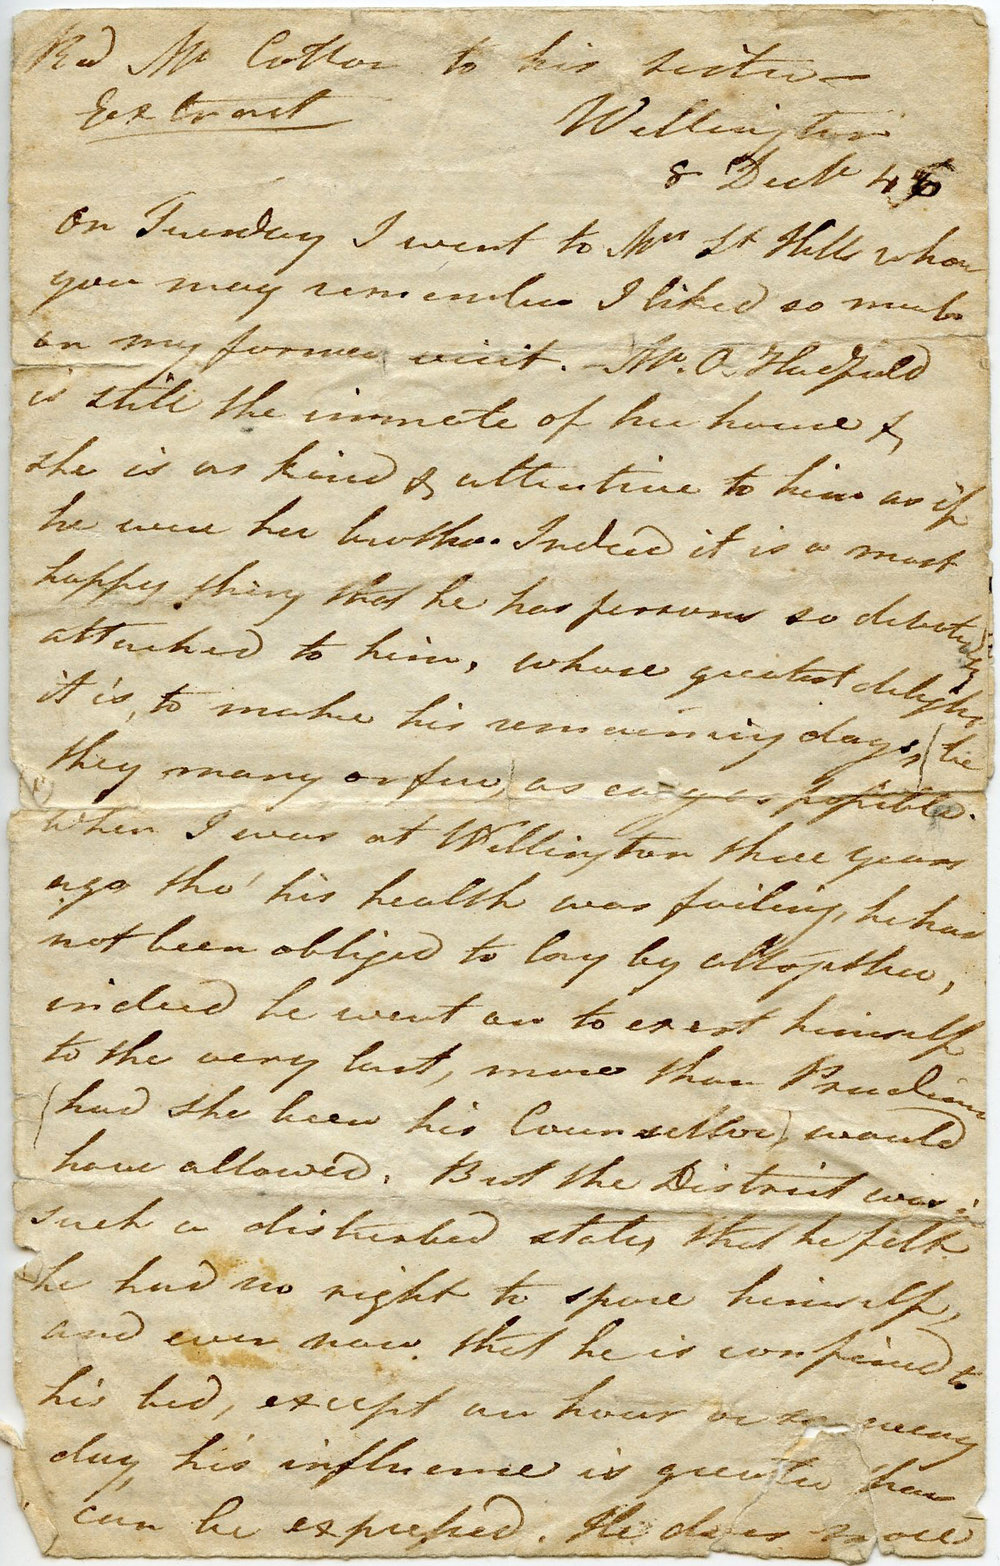 Revd Mr Cotton to his sister
Extract
Wellington
8 Decbr 46
On Tuesday I went to Mrs St Hills whom
you may remember I liked so much
on my former visit. Mr. O. Hadfield
is still the inmate of her house &
she is as kind & attentive to him as if
he were her brother. Indeed it is a most
happy thing that he has persons so devotedly
attached to him, whose greatest delight
it is, to make his remaining days, (be
they many or few) as easy as possible.
When I was at Wellington three years
ago tho' his health was failing, he had
not been obliged to lay by altogether,
indeed he went on to exert himself
to the very last, more than Prudence
(had she been his Counsellor) would
have allowed. But the District was in
such a disturbed state, that he felt
he had no right to spare himself,
and even now that he is confined to
his bed, except an hour or so every
day, his influence is greater than
can be expressed. He does more